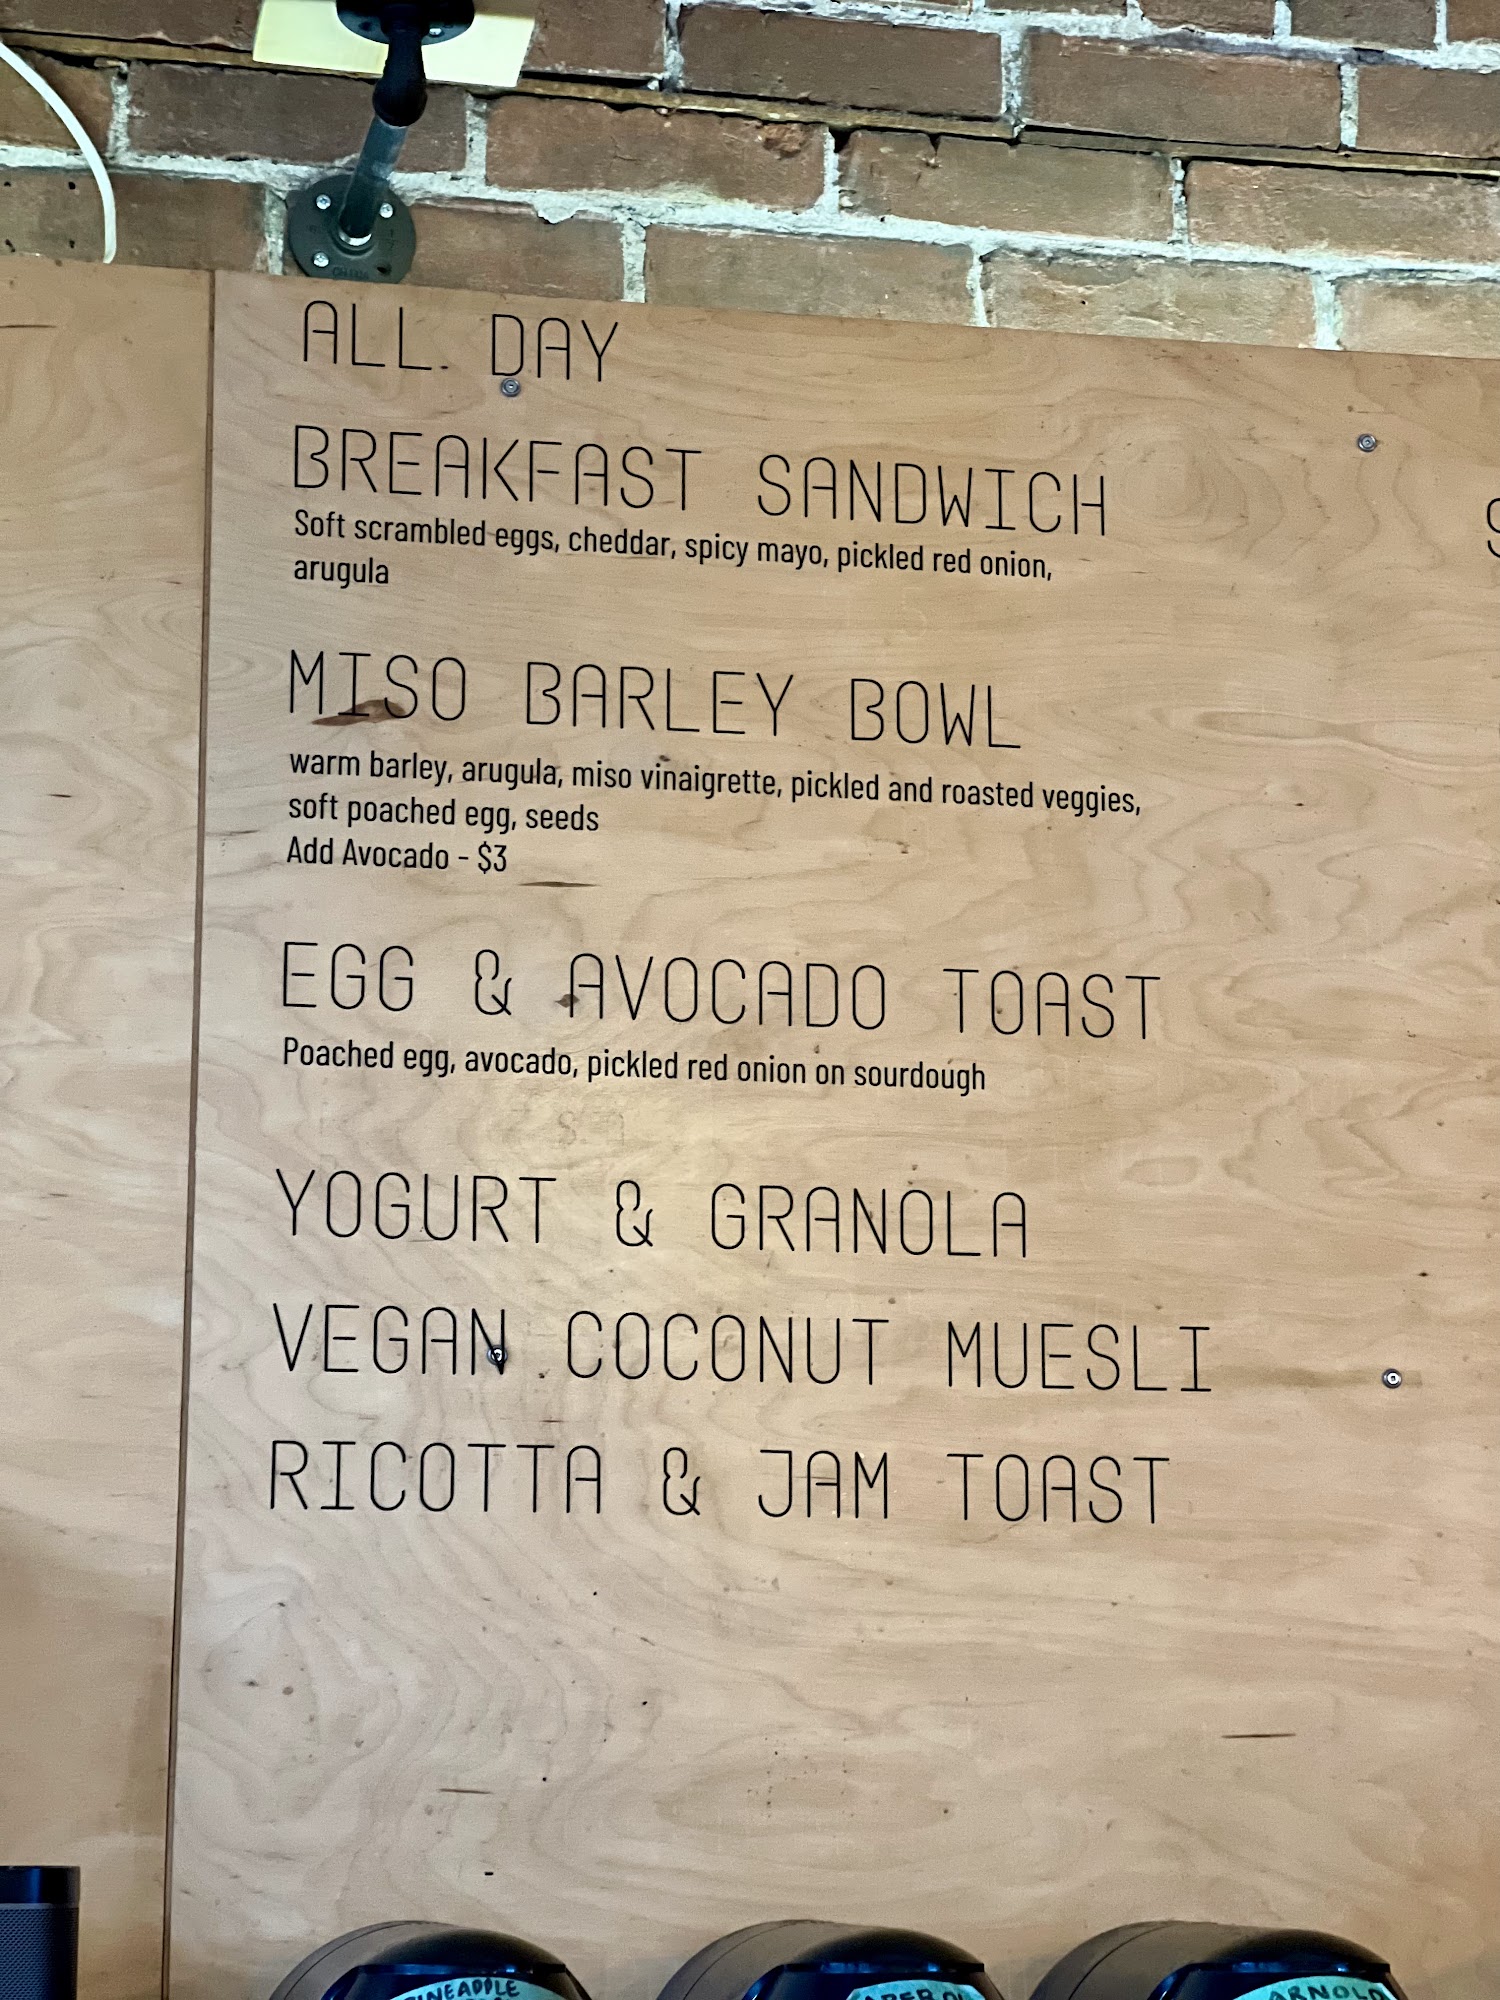 ALL DAY
BREAKFAST SANDWICH
Soft scrambled eggs, cheddar, spicy mayo, pickled red onion,
arugula
MISO BARLEY BOWL
warm barley, arugula, miso vinaigrette, pickled and roasted veggies,
soft poached egg, seeds
Add Avocado - $3
EGG & AVOCADO TOAST
Poached egg, avocado, pickled red onion on sourdough
YOGURT & GRANOLA
VEGAN COCONUT MUESLI
RICOTTA & JAM TOAST
ARNOLD